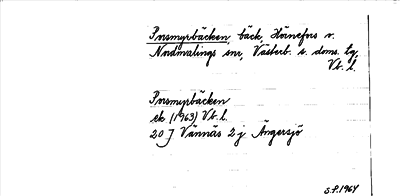 Porsmyrbäcken, bäck, Hörnefors o.
Nordmalings snr, Västerb. s. doms. lg,
Vb. l.
Porsmyrbäcken
ek (1963) Vb. l.
20 J Vännäs 2 j Ängersjö
S.P. 1964